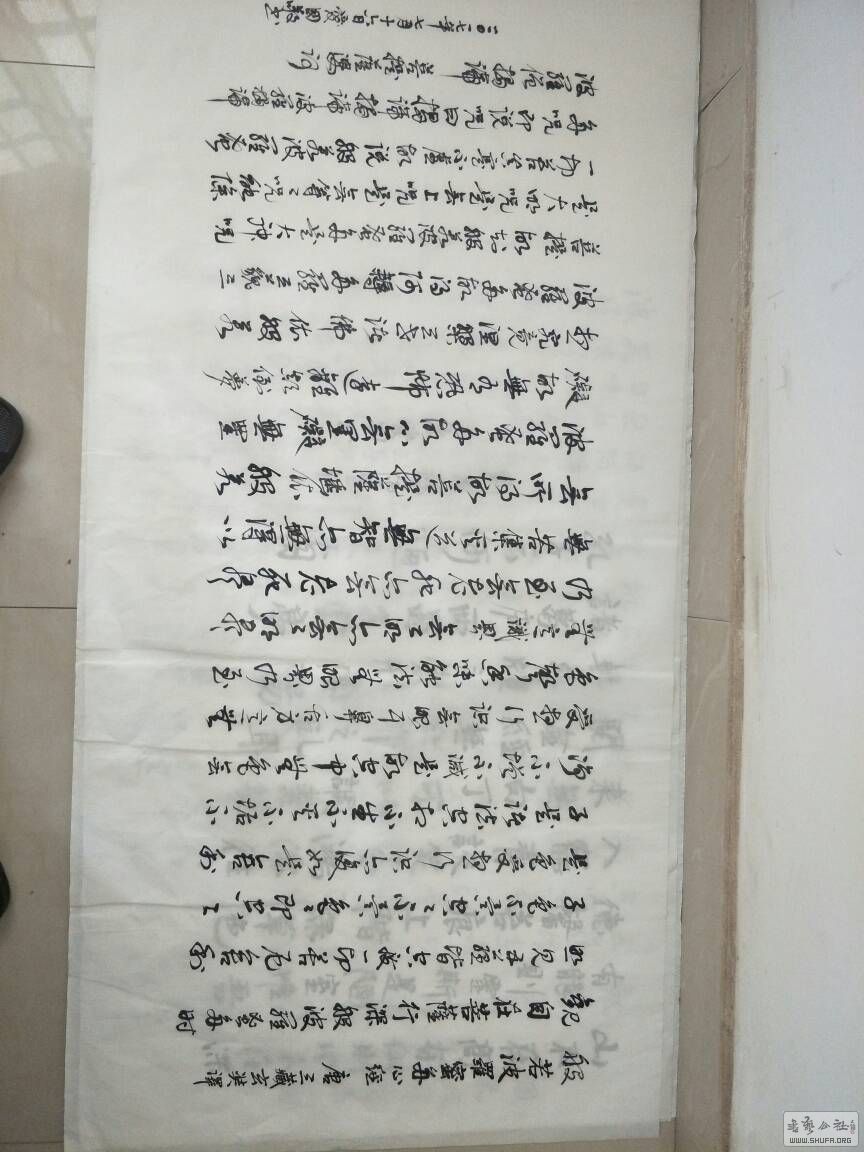 般若波羅蜜多心經 唐三藏玄奘譯
觀自在菩薩行深般若波羅蜜多時
照見五蘊皆空度一切苦厄舍利
子色不異空空不異色色即是空空
即是色受想行識亦復如是舍利
子是諸法空相不生不滅不垢不
淨不增不減是故空中無色無
受想行識無眼耳鼻舌身意無
色聲香味觸法無眼界乃至
無意識界無無明亦無無明盡
乃至無老死亦無老死盡
無苦集滅道無智亦無得以
無所得故菩提薩埵依般若
波羅蜜多故心無罣礙無罣
礙故無有恐怖遠離顛倒夢
想究竟涅槃三世諸佛依般若
波羅蜜多故得阿耨多羅三藐三
菩提故知般若波羅蜜多是大神咒
是大明咒是無上咒是無等等咒能除
一切苦真實不虛故說般若波羅蜜
多咒即說咒曰揭諦揭諦波羅揭諦
波羅僧揭諦菩提薩婆訶
二〇一七年七月十六日
書藝公社
WWW.SHUFA.ORG